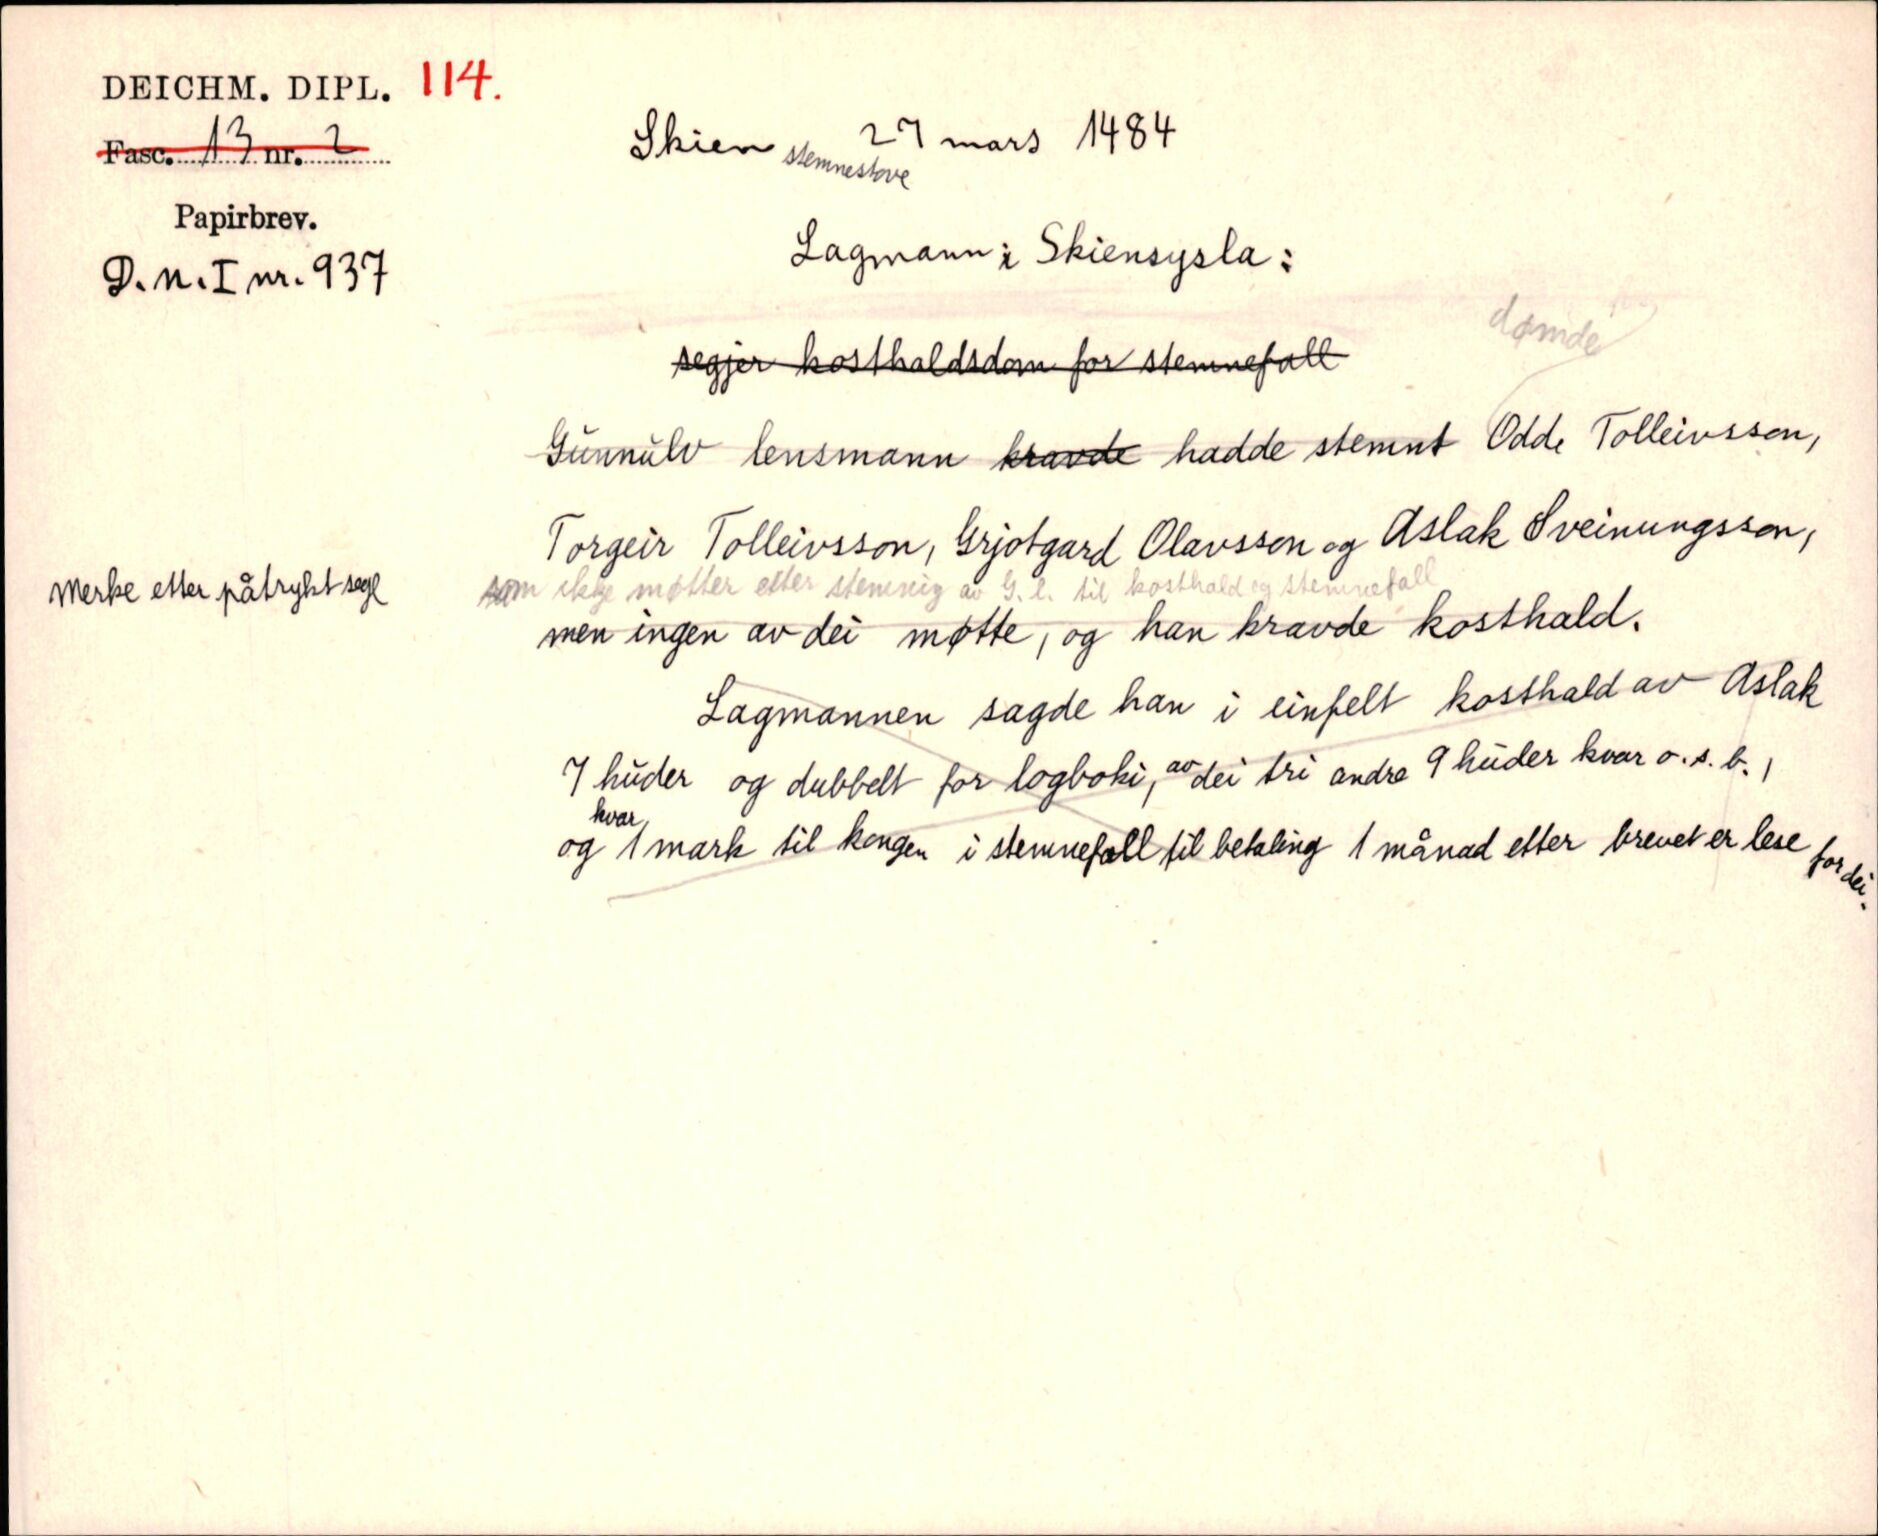 DEICHM. DIPL. 114.
Fasc. 13 nr. 2
Papirbrev.
D.N.I nr. 937
Skien stemnestove 27 mars 1484
Lagmann i Skiensysla:
segjer kosthaldsdom for stemnefall
dømde
Gunnulv lensmann kravde hadde stemnt Odde Tolleivsson,
Torgeir Tolleivsson, Grjotgard Olavsson og Aslak Sveinungsson,
Merke etter påtrykt segl
som ikkje møtter etter stemnig av G. l. til kosthald og stemnefall
men ingen av dei møtte, og han kravde kosthald.
Lagmannen sagde han i einfelt kosthald av Aslak
7 huder og dubbelt for logboki, av dei tri andre 9 huder kvar o.s.b.,
kvar
og 1 mark til kongen i stemnefall til betaling 1 månad etter brevet er lese for dei.